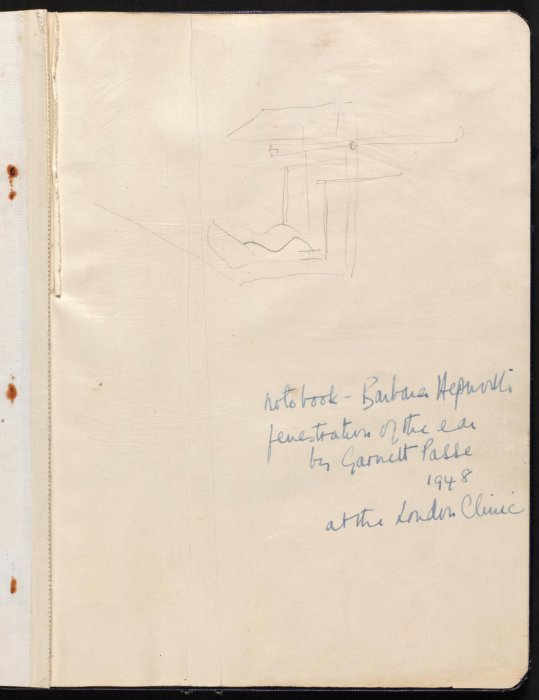 notebook - Barbara Hepworth
fenestration of the ear
by Garnett Passe
1948
at the London Clinic